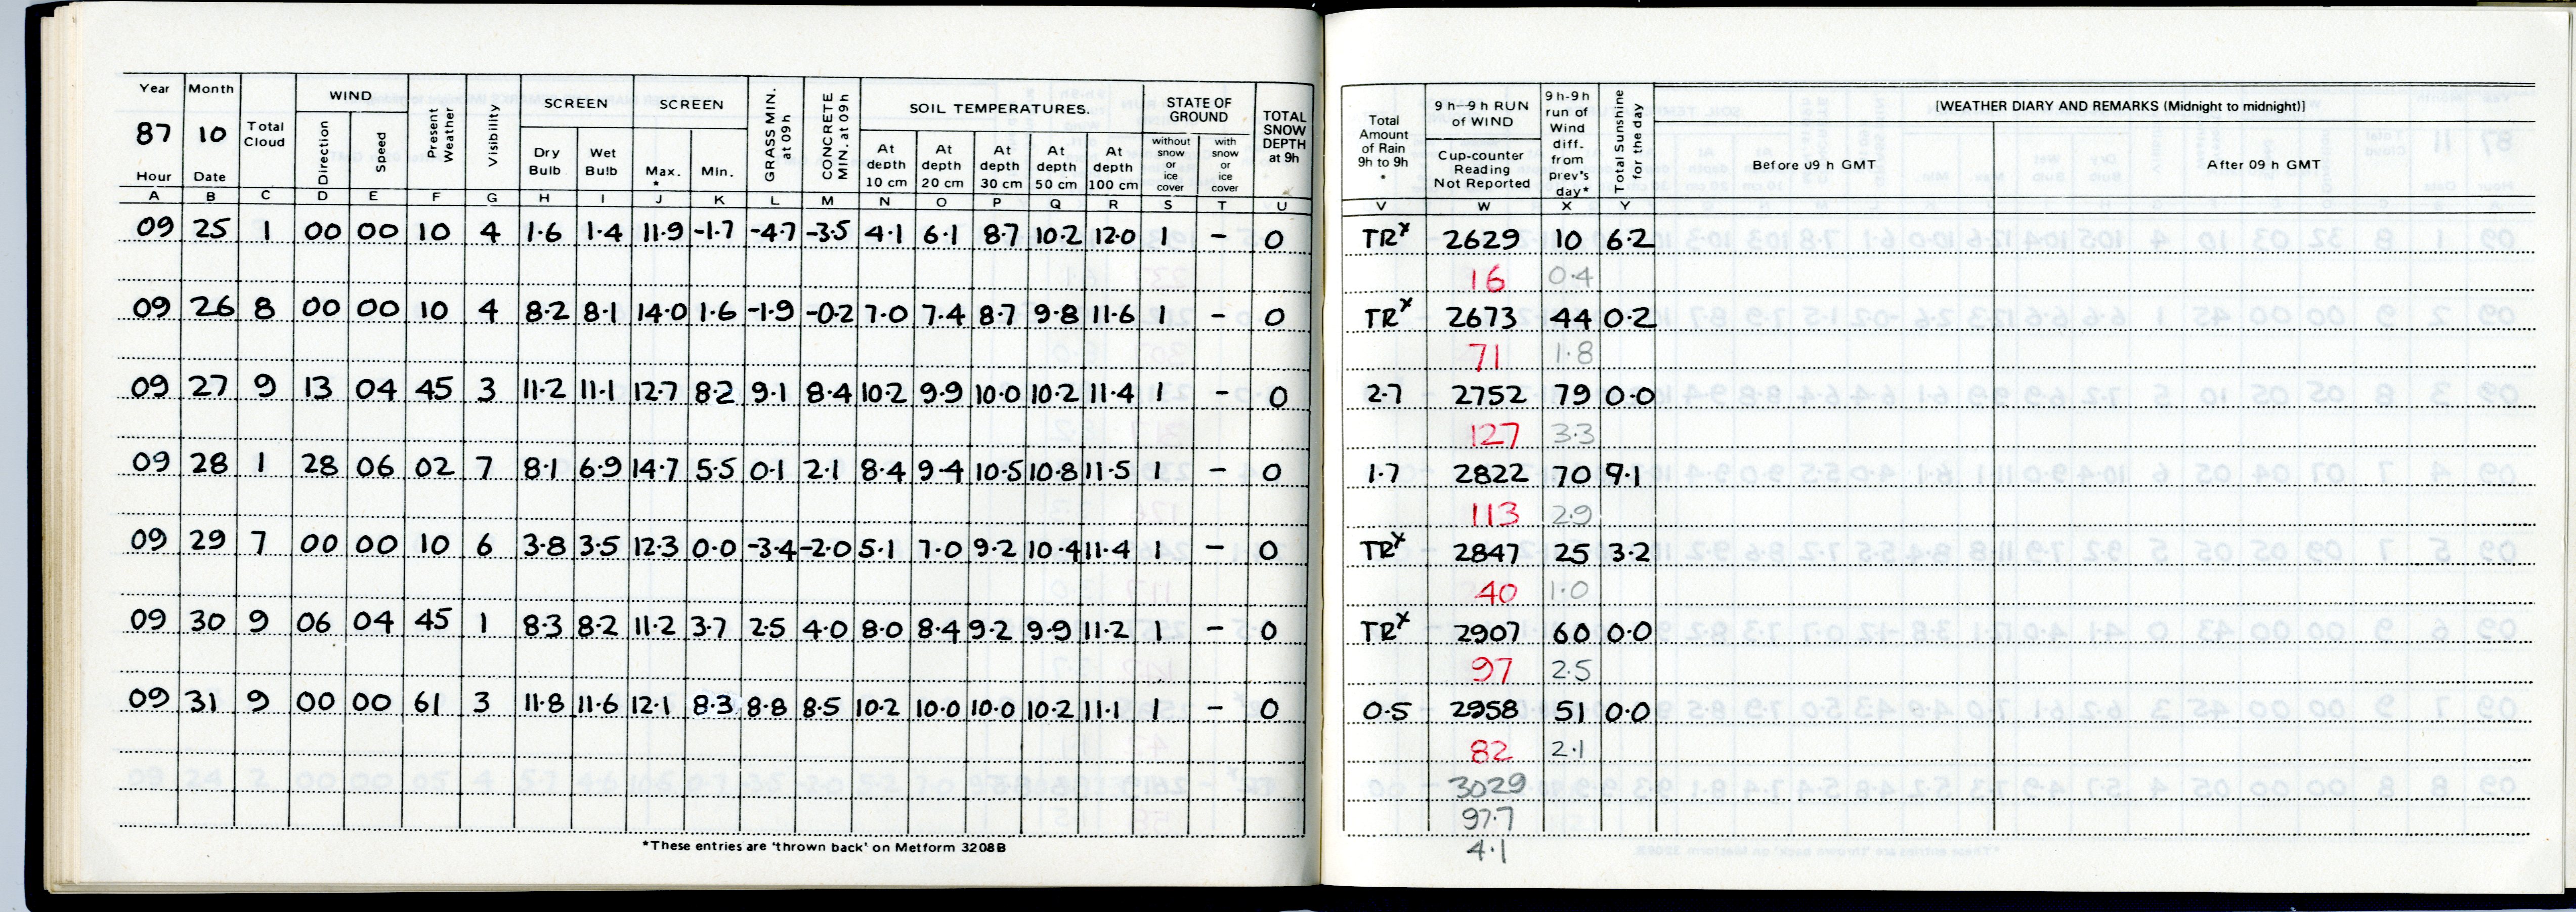 Year Month Total Cloud WIND Present Weather Visibility SCREEN SCREEN GRASS MIN. at 09h CONCRETE MIN. at 09h SOIL TEMPERATURES. STATE OF GROUND TOTAL SNOW DEPTH at 9h
87 10 Direction Speed Dry Bulb Wet Bulb Max. * Min. At depth 10 cm At depth 20 cm At depth 30 cm At depth 50 cm At depth 100 cm without snow or ice cover with snow or ice cover
Hour Date
A B C D E F G H I J K L M N O P Q R S T U
09 25 1 00 00 10 4 1.6 1.4 11.9 -1.7 -4.7 -3.5 4.1 6.1 8.7 10.2 12.0 1 - 0
09 26 8 00 00 10 4 8.2 8.1 14.0 1.6 -1.9 -0.2 7.0 7.4 8.7 9.8 11.6 1 - 0
09 27 9 13 04 45 3 11.2 11.1 12.7 8.2 9.1 8.4 10.2 9.9 10.0 10.2 11.4 1 - 0
09 28 1 28 06 02 7 8.1 6.9 14.7 5.5 0.1 2.1 8.4 9.4 10.5 10.8 11.5 1 - 0
09 29 7 00 00 10 6 3.8 3.5 12.3 0.0 -3.4 -2.0 5.1 7.0 9.2 10.4 11.4 1 - 0
09 30 9 06 04 45 1 8.3 8.2 11.2 3.7 2.5 4.0 8.0 8.4 9.2 9.9 11.2 1 - 0
09 31 9 00 00 61 3 11.8 11.6 12.1 8.3 8.8 8.5 10.2 10.0 10.0 10.2 11.1 1 - 0
*These entries are 'thrown back' on Metform 3208B
Total Amount of Rain 9h to 9h * 9h-9h RUN of WIND 9h-9h run of Wind diff. from prev's day* Total Sunshine for the day [WEATHER DIARY AND REMARKS (Midnight to midnight)]
Cup-counter Reading Not Reported Before 09 h GMT After 09 h GMT
V W X Y
TRx 2629 10 6.2
16 0.4
TRx 2673 44 0.2
71 1.8
2.7 2752 79 0.0
127 3.3
1.7 2822 70 9.1
113 2.9
TRx 2847 25 3.2
40 1.0
TRx 2907 60 0.0
97 2.5
0.5 2958 51 0.0
82 2.1
3029
97.7
4.1